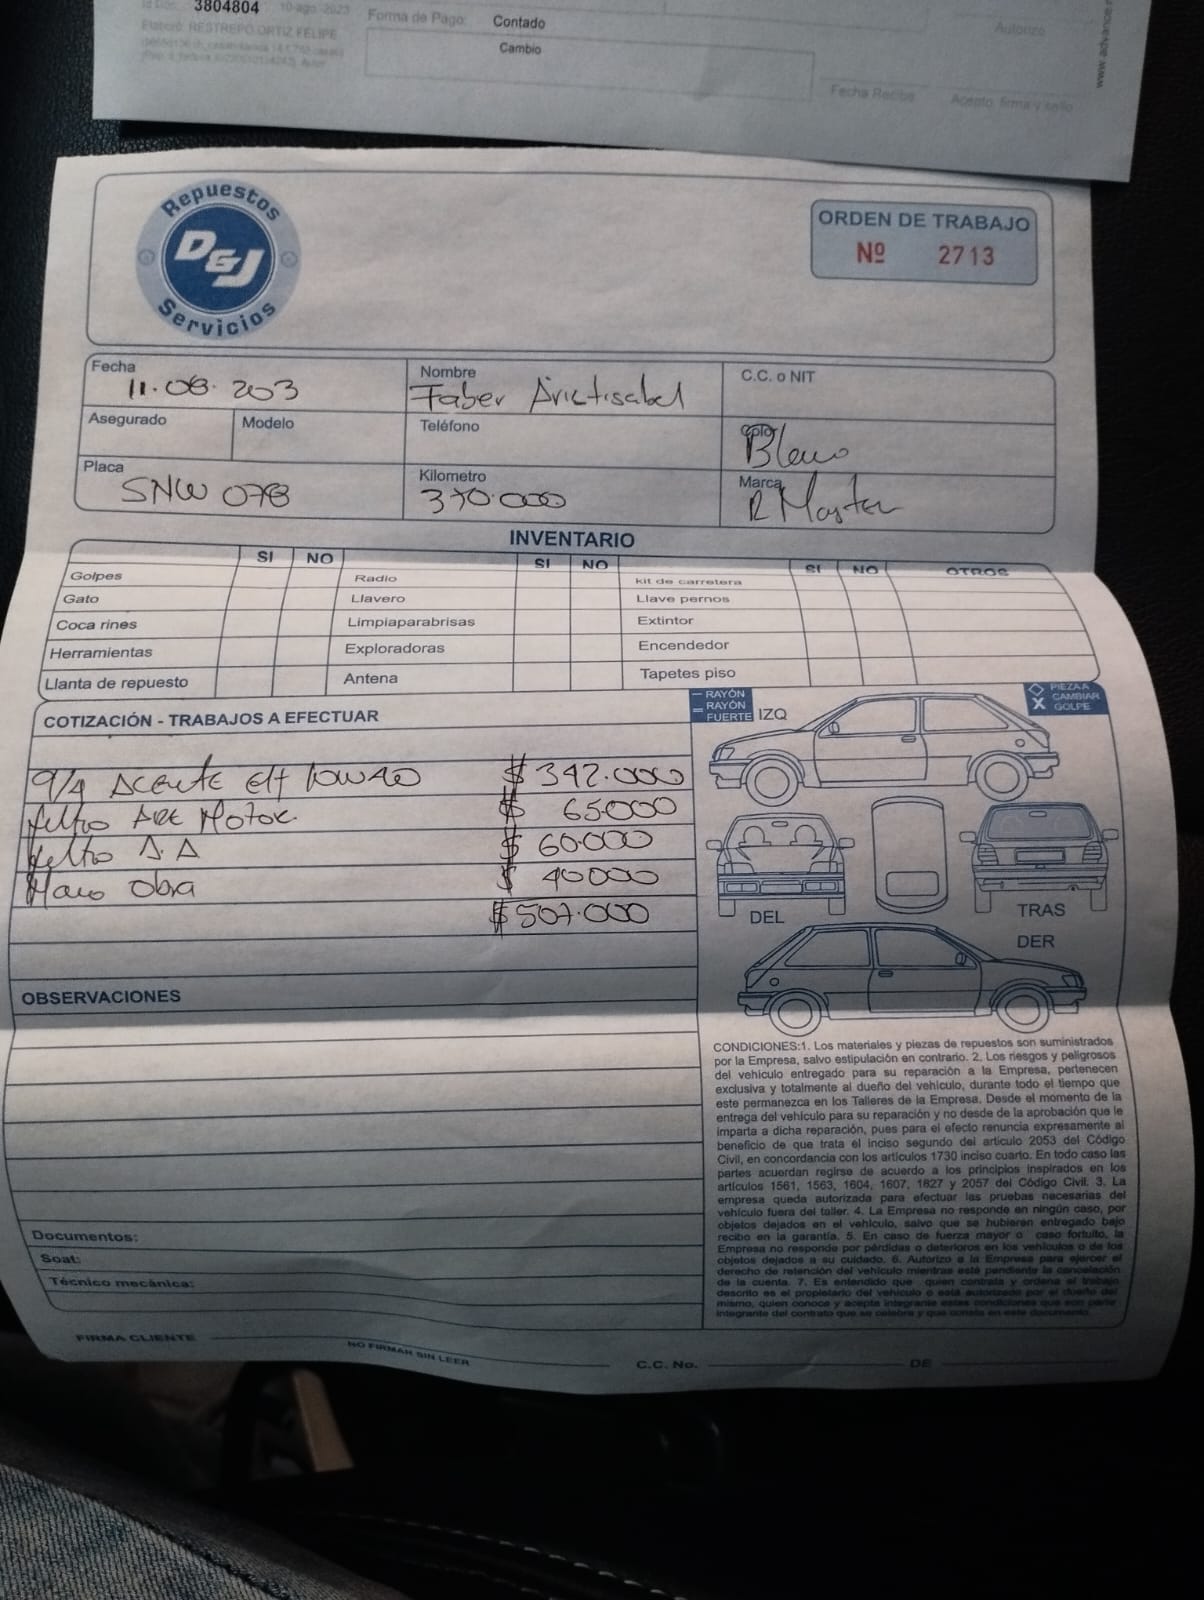 Id Doc. 3804804 10-ago.-2023
Elaboró: RESTREPO ORTIZ FELIPE
Forma de Pago: Contado
Cambio
Autorizo
Fecha Recibe
Acepto, firma y sello
www.advance
Repuestos
D&J
Servicios
ORDEN DE TRABAJO
Nº 2713
Fecha 11.08.203
Nombre Faber Aristisabel
C.C. o NIT
Asegurado
Modelo
Teléfono
Color Blanco
Placa SNW 078
Kilometro 370.000
Marca R Master
INVENTARIO
SI NO SI NO SI NO OTROS
Golpes Radio kit de carretera
Gato Llavero Llave pernos
Coca rines Limpiaparabrisas Extintor
Herramientas Exploradoras Encendedor
Llanta de repuesto Antena Tapetes piso
COTIZACIÓN - TRABAJOS A EFECTUAR
9/4 Aceite Elf 10W40 $ 342.000
filtro Aire Motor $ 65000
filtro A.A $ 60.000
Mano obra $ 40000
$ 507.000
RAYÓN
RAYÓN
FUERTE
IZQ
PIEZA A
CAMBIAR
X GOLPE
DEL
TRAS
DER
OBSERVACIONES
CONDICIONES:1. Los materiales y piezas de repuestos son suministrados
por la Empresa, salvo estipulación en contrario. 2. Los riesgos y peligrosos
del vehiculo entregado para su reparación a la Empresa, pertenecen
exclusiva y totalmente al dueño del vehiculo, durante todo el tiempo que
este permanezca en los Talleres de la Empresa. Desde el momento de la
entrega del vehiculo para su reparación y no desde de la aprobación que le
imparta a dicha reparación, pues para el efecto renuncia expresamente al
beneficio de que trata el inciso segundo del articulo 2053 del Código
Civil, en concordancia con los articulos 1730 inciso cuarto. En todo caso las
partes acuerdan regirse de acuerdo a los principios inspirados en los
articulos 1561, 1563, 1604, 1607, 1827 y 2057 del Código Civil. 3. La
empresa queda autorizada para efectuar las pruebas necesarias del
vehiculo fuera del taller. 4. La Empresa no responde en ningún caso, por
objetos dejados en el vehiculo, salvo que se hubieren entregado bajo
recibo en la garantía. 5. En caso de fuerza mayor o caso fortuito, la
Empresa no responde por pérdidas o deterioros en los vehículos o de los
objetos dejados a su cuidado. 6. Autorizo a la Empresa para ejercer el
derecho de retención del vehiculo mientras esté pendiente la cancelación
de la cuenta. 7. Es entendido que quien contrata y ordena el trabajo
descrito es el propietario del vehiculo o está autorizado por el dueño del
mismo, quien conoce y acepta integrante estas condiciones que son parte
integrante del contrato que se celebra y que consta en este documento.
Documentos:
Soat:
Técnico mecánica:
FIRMA CLIENTE NO FIRMAR SIN LEER C.C. No. DE